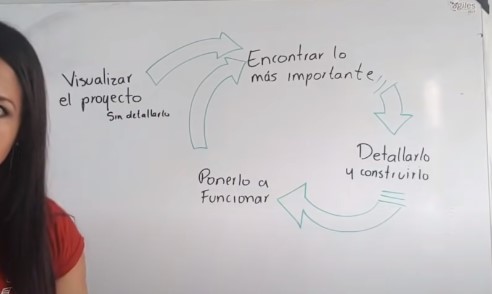 Visualizar
el proyecto
Sin detallarlo
Encontrar lo
más importante
Detallarlo
y construirlo
Ponerlo a
Funcionar